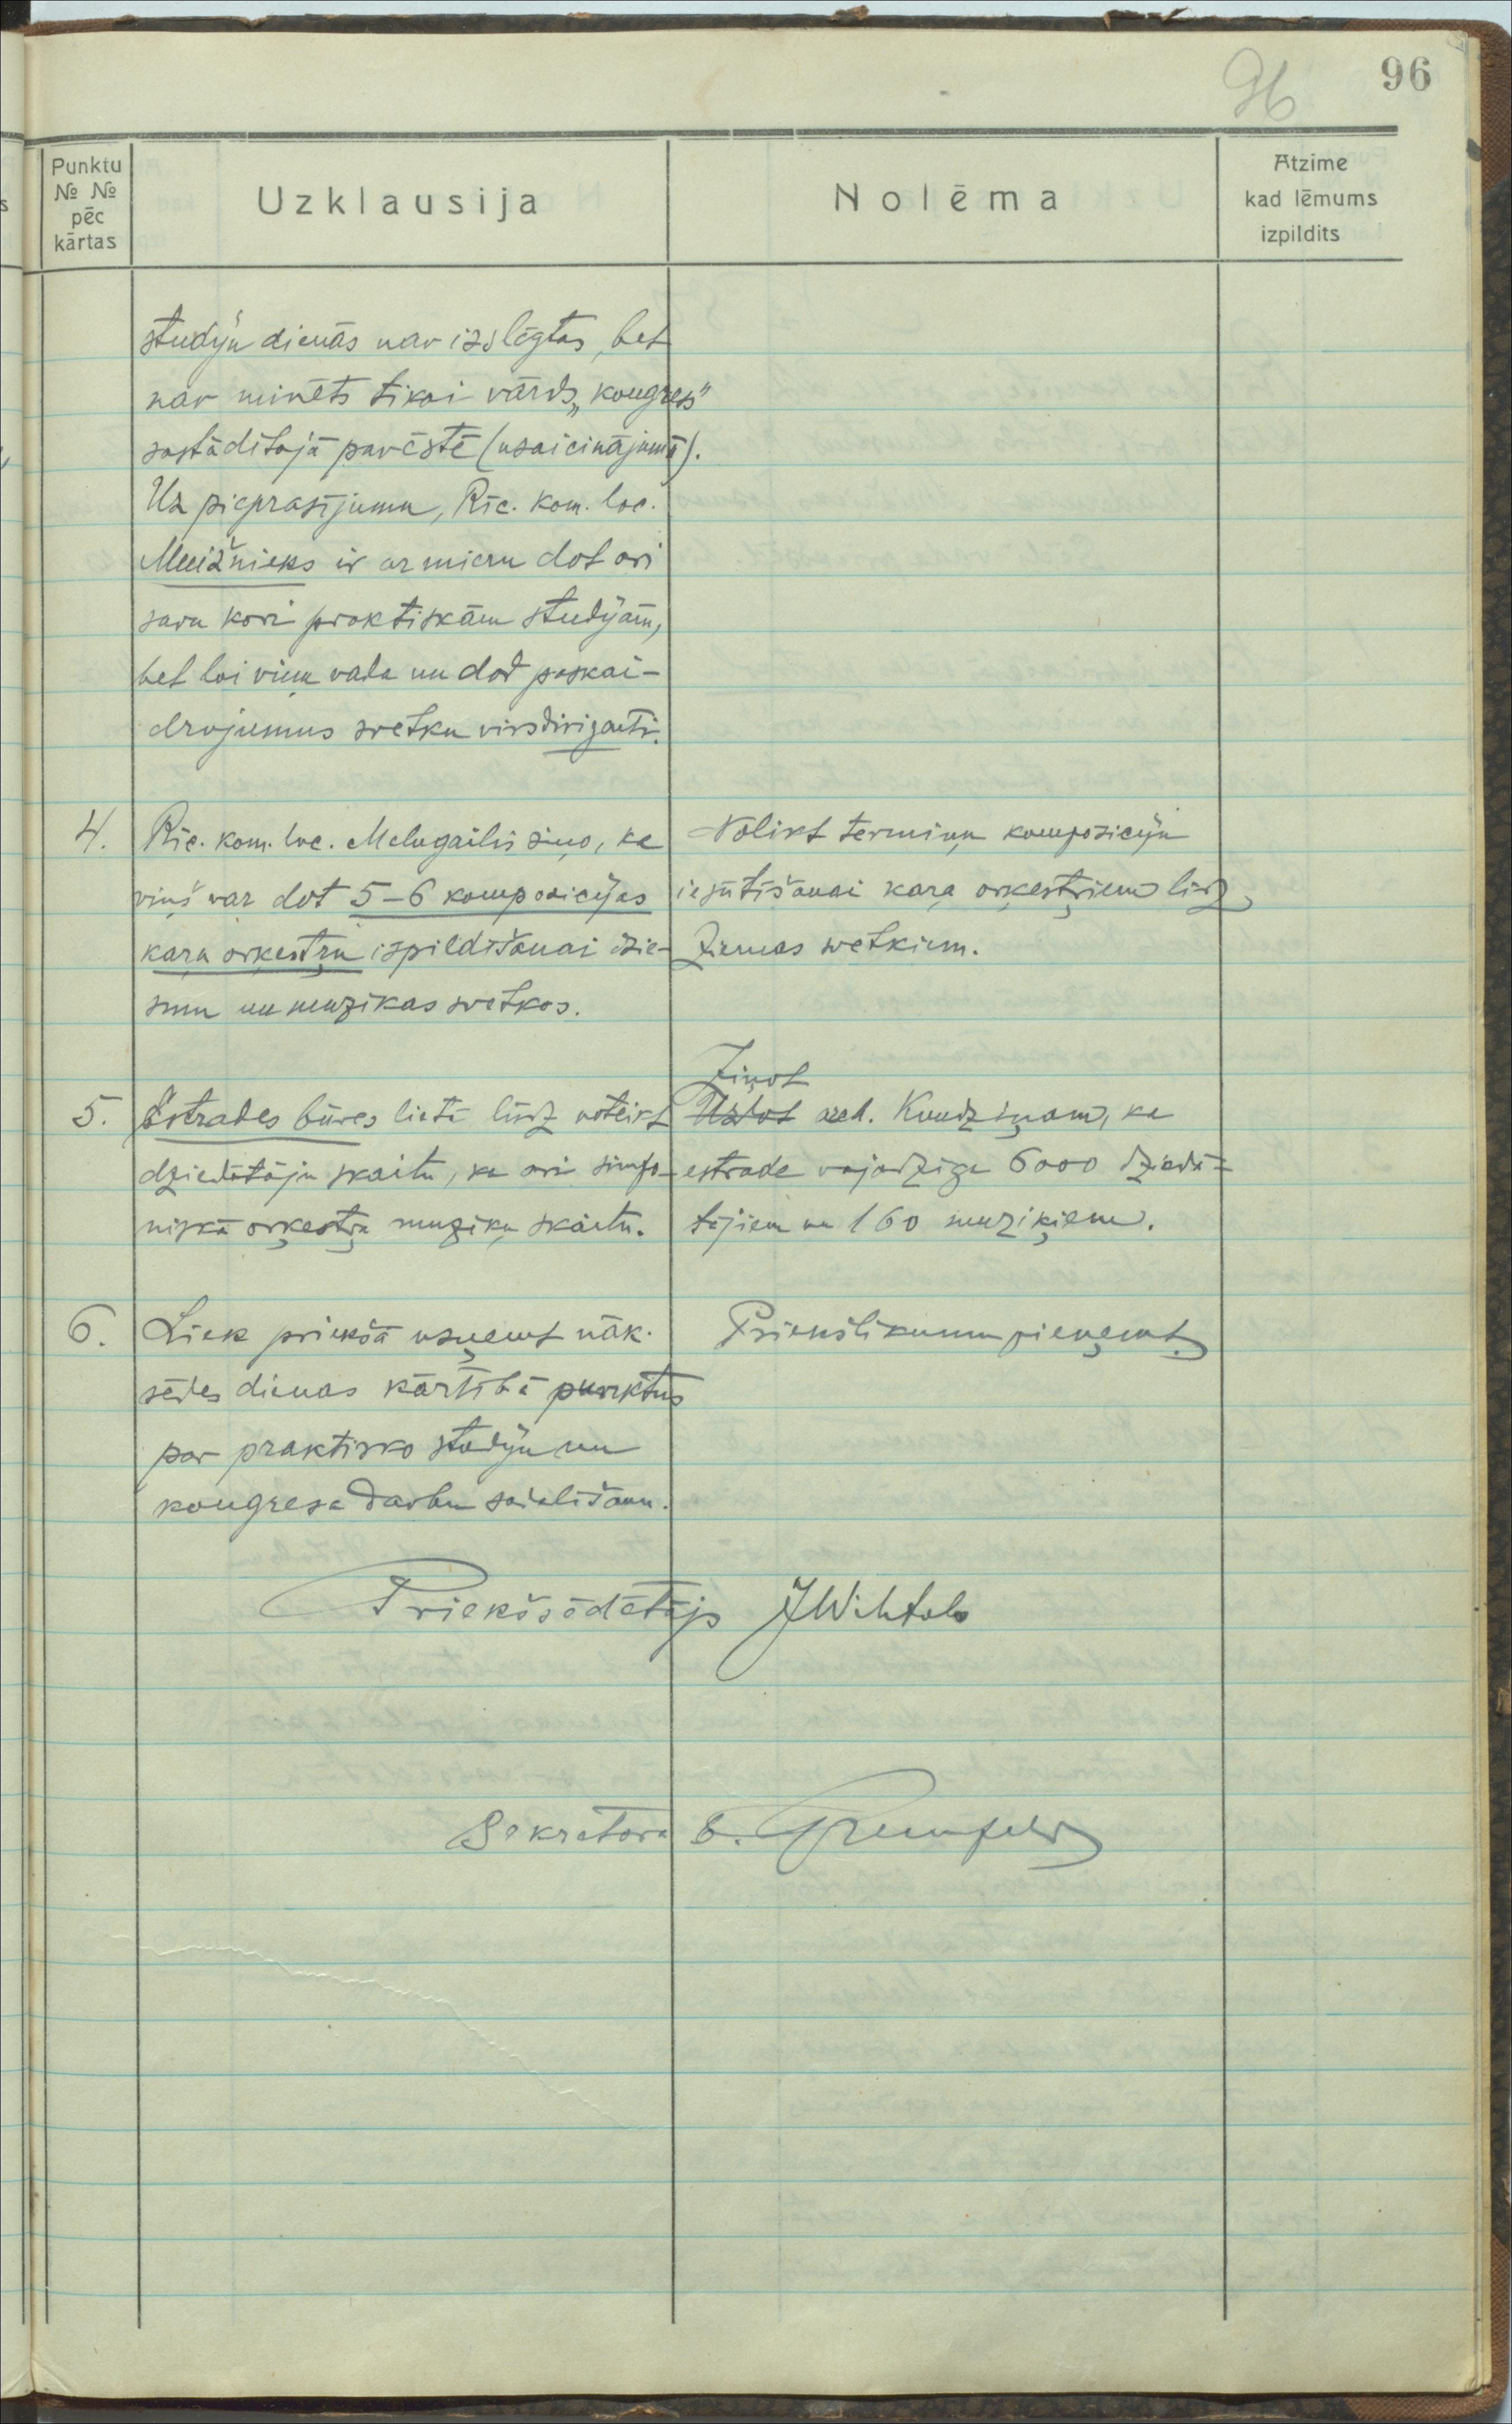 96
96
Punktu
№ №
pēc
kārtas
Uzklausija
Nolēma
Atzime
kad lēmums
izpildits
studiju dienās nav izslēgtas, bet
nav minēts tikai vārds „kongress"
sastāditajā pavēstē (uzaicinājumā).
Uz pieprasījumu, Rīc. kom. loc.
Muižnieks ir ar mieru dot ari
savu kori praktiskām studijām,
bet lai viņu vada un dod paskai-
drojumus svētku virsdirigenti.
4.
Rīc. kom. loc. Melngailis ziņo, ka
viņš var dot 5-6 kompozicijas
kara orķestŗu izpildīšanai dzie-
smu un muzikas svētkos.
Nolikt termiņu kompoziciju
iesūtīšanai kaŗa orķestŗiem līdz
Ziemas svētkiem.
5.
Estrades būves lietā lūdz noteikt
dziedātāju skaitu, kā arī simfo-
niskā orķestŗa muziķu skaitu.
Ziņot
Uzdot arch. Kundziņam, ka
estrade vajadzīga 6000 dziedā-
tājiem un 160 muziķiem.
6.
Liek priekšā uzņemt nāk.
sēdes dienas kārtībā punktus
par praktisko studiju un
kongresa darbu sadalīšanu.
Priekšlikumu pieņemt.
Priekšsēdētājs JWihtols
Sekretara E.